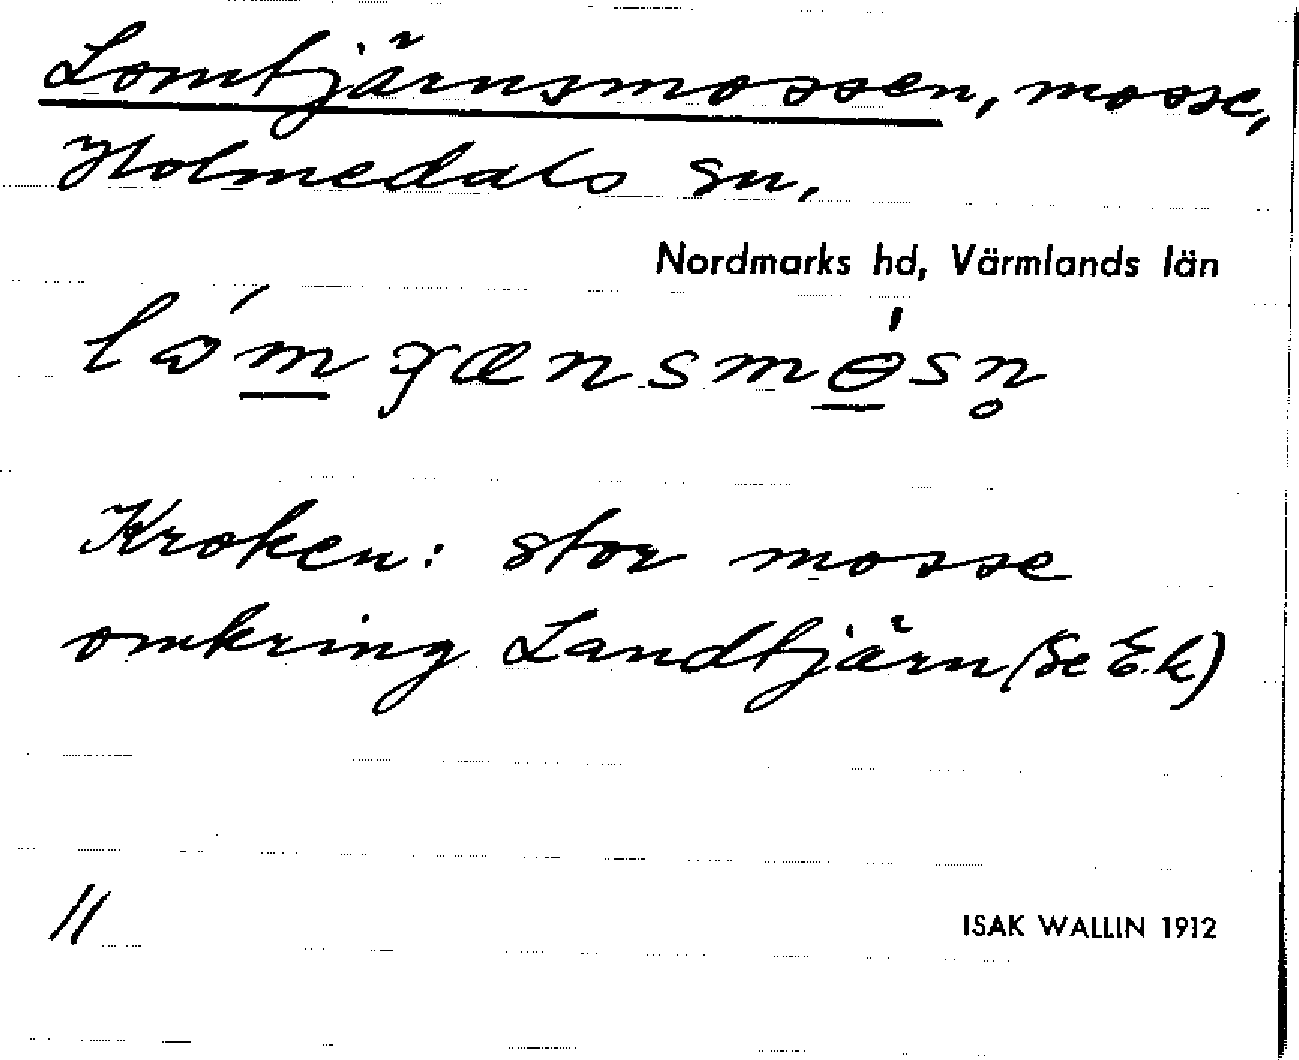 Lomtjärnsmossen, mosse,
Holmedals sn.
Nordmarks hd, Värmlands län
Kroken: stor mosse
omkring Landtjärn (Se E.k)
11
ISAK WALLIN 1912